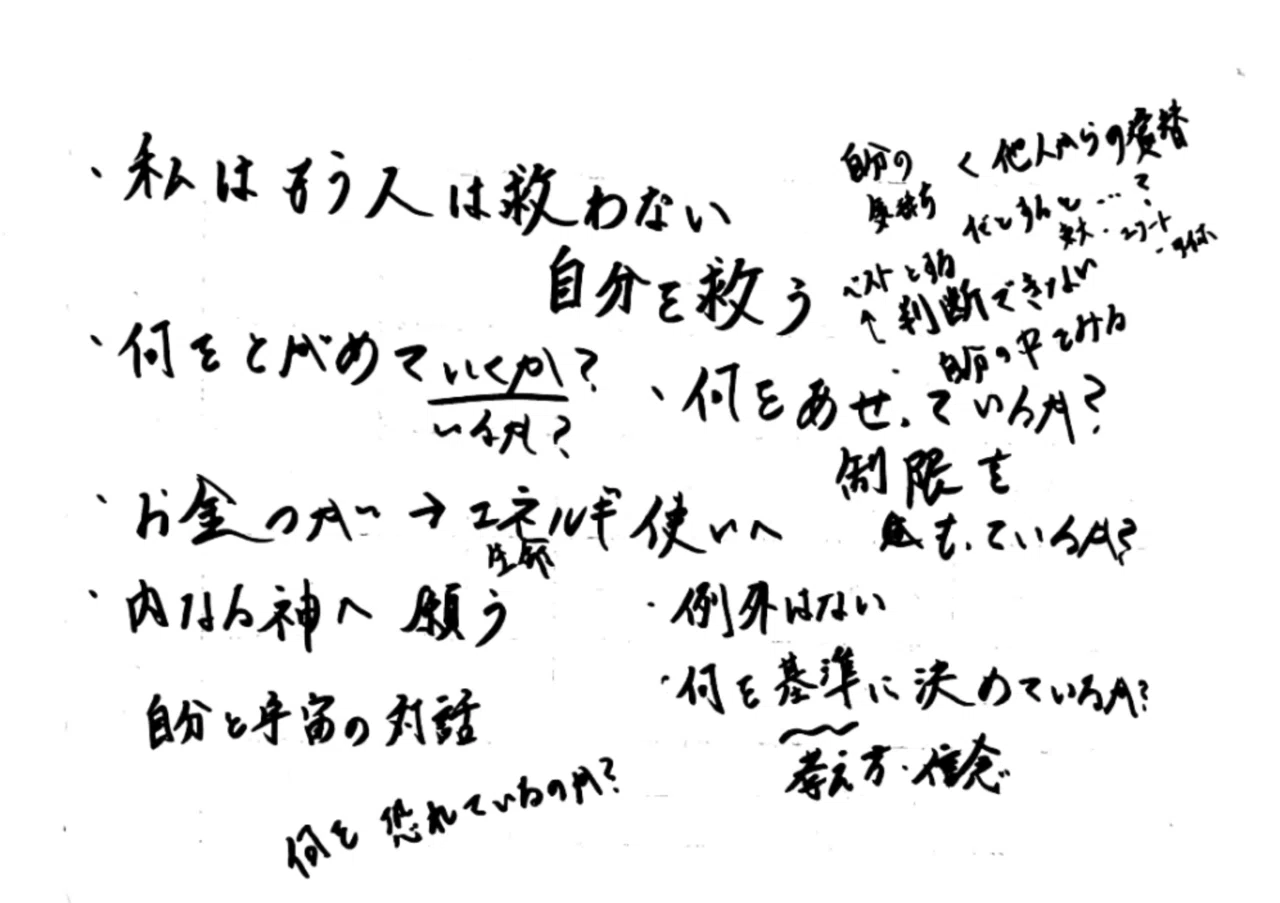 ・私はもう人は救わない
自分を救う
・何をとがめていくか？
いるか？
・お金つかい→エネルギ使いへ
全部
・内なる神へ願う
自分と宇宙の対話
何を恐れているのか？
自分の気持ち く 他人からの賞賛
だとすると…？
ベストとする
↑判断できない
自分の中をみる
・何をあせっているか？
制限を
もっているか？
・例外はない
・何を基準に決めているか？
考え方・信念